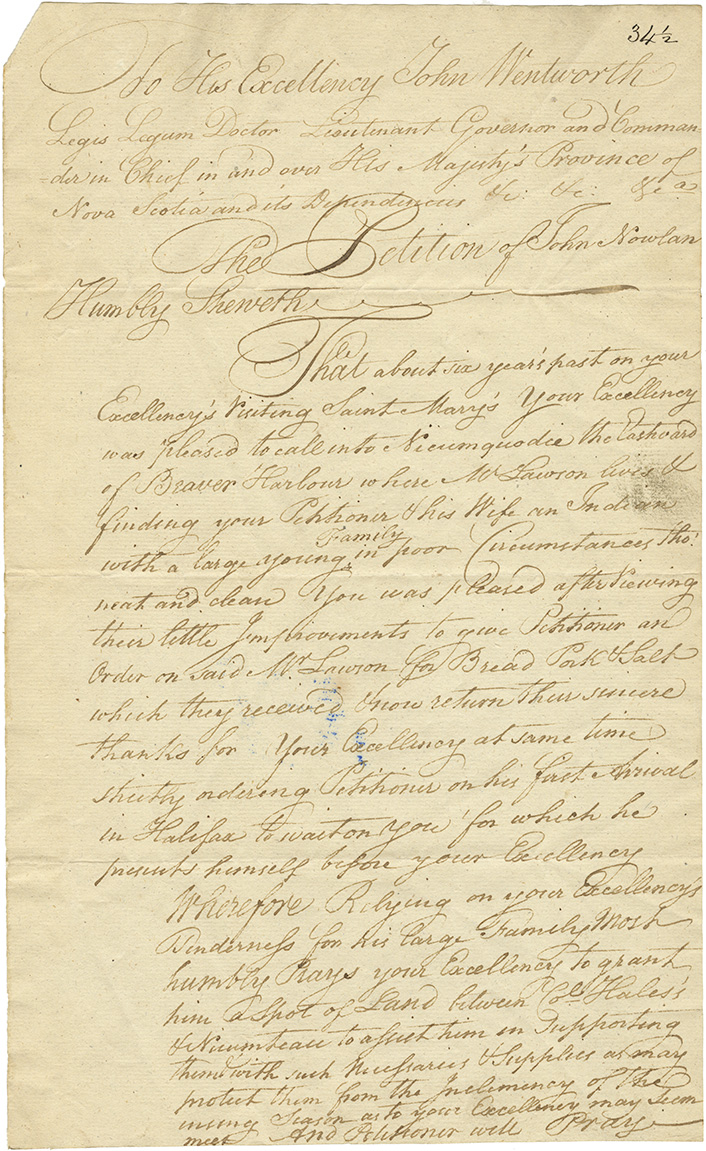 34½
To His Excellency John Wentworth
Legis Legum Doctor Lieutenant Governor and Comman-
-der in Chief in and over His Majesty's Province of
Nova Scotia and its Dependencies &c: &c: &ca
The Petition of John Nowlan
Humbly Sheweth
That about six year's past on your
Excellency's Visiting Saint Mary's Your Excellency
was pleased to call into Nicumquodie the Eastward
of Beaver Harbour where Mr Lawson lives &
finding your Petitioner & his Wife an Indian
with a large young Family in poor Circumstances tho'
neat and clean You was pleased after Viewing
their little Improvements to give Petitioner an
Order on said Mr Lawson for Bread Pork & Salt
which they received & now return their sincere
thanks for Your Excellency at same time
strictly ordering Petitioner on his first Arrival
in Halifax to wait on you for which he
presents himself before your Excellency
Wherefore Relying on your Excellency's
Tenderness for his large Family Most
humbly Prays your Excellency to grant
him a Spot of Land between Coll Hales's
& Nicumteau to assist him in Supporting
them with such Necessaries & Supplies as may
protect them from the Inclemency of the
insuing Season as to your Excellency may Seem
meet And Petitioner will Pray